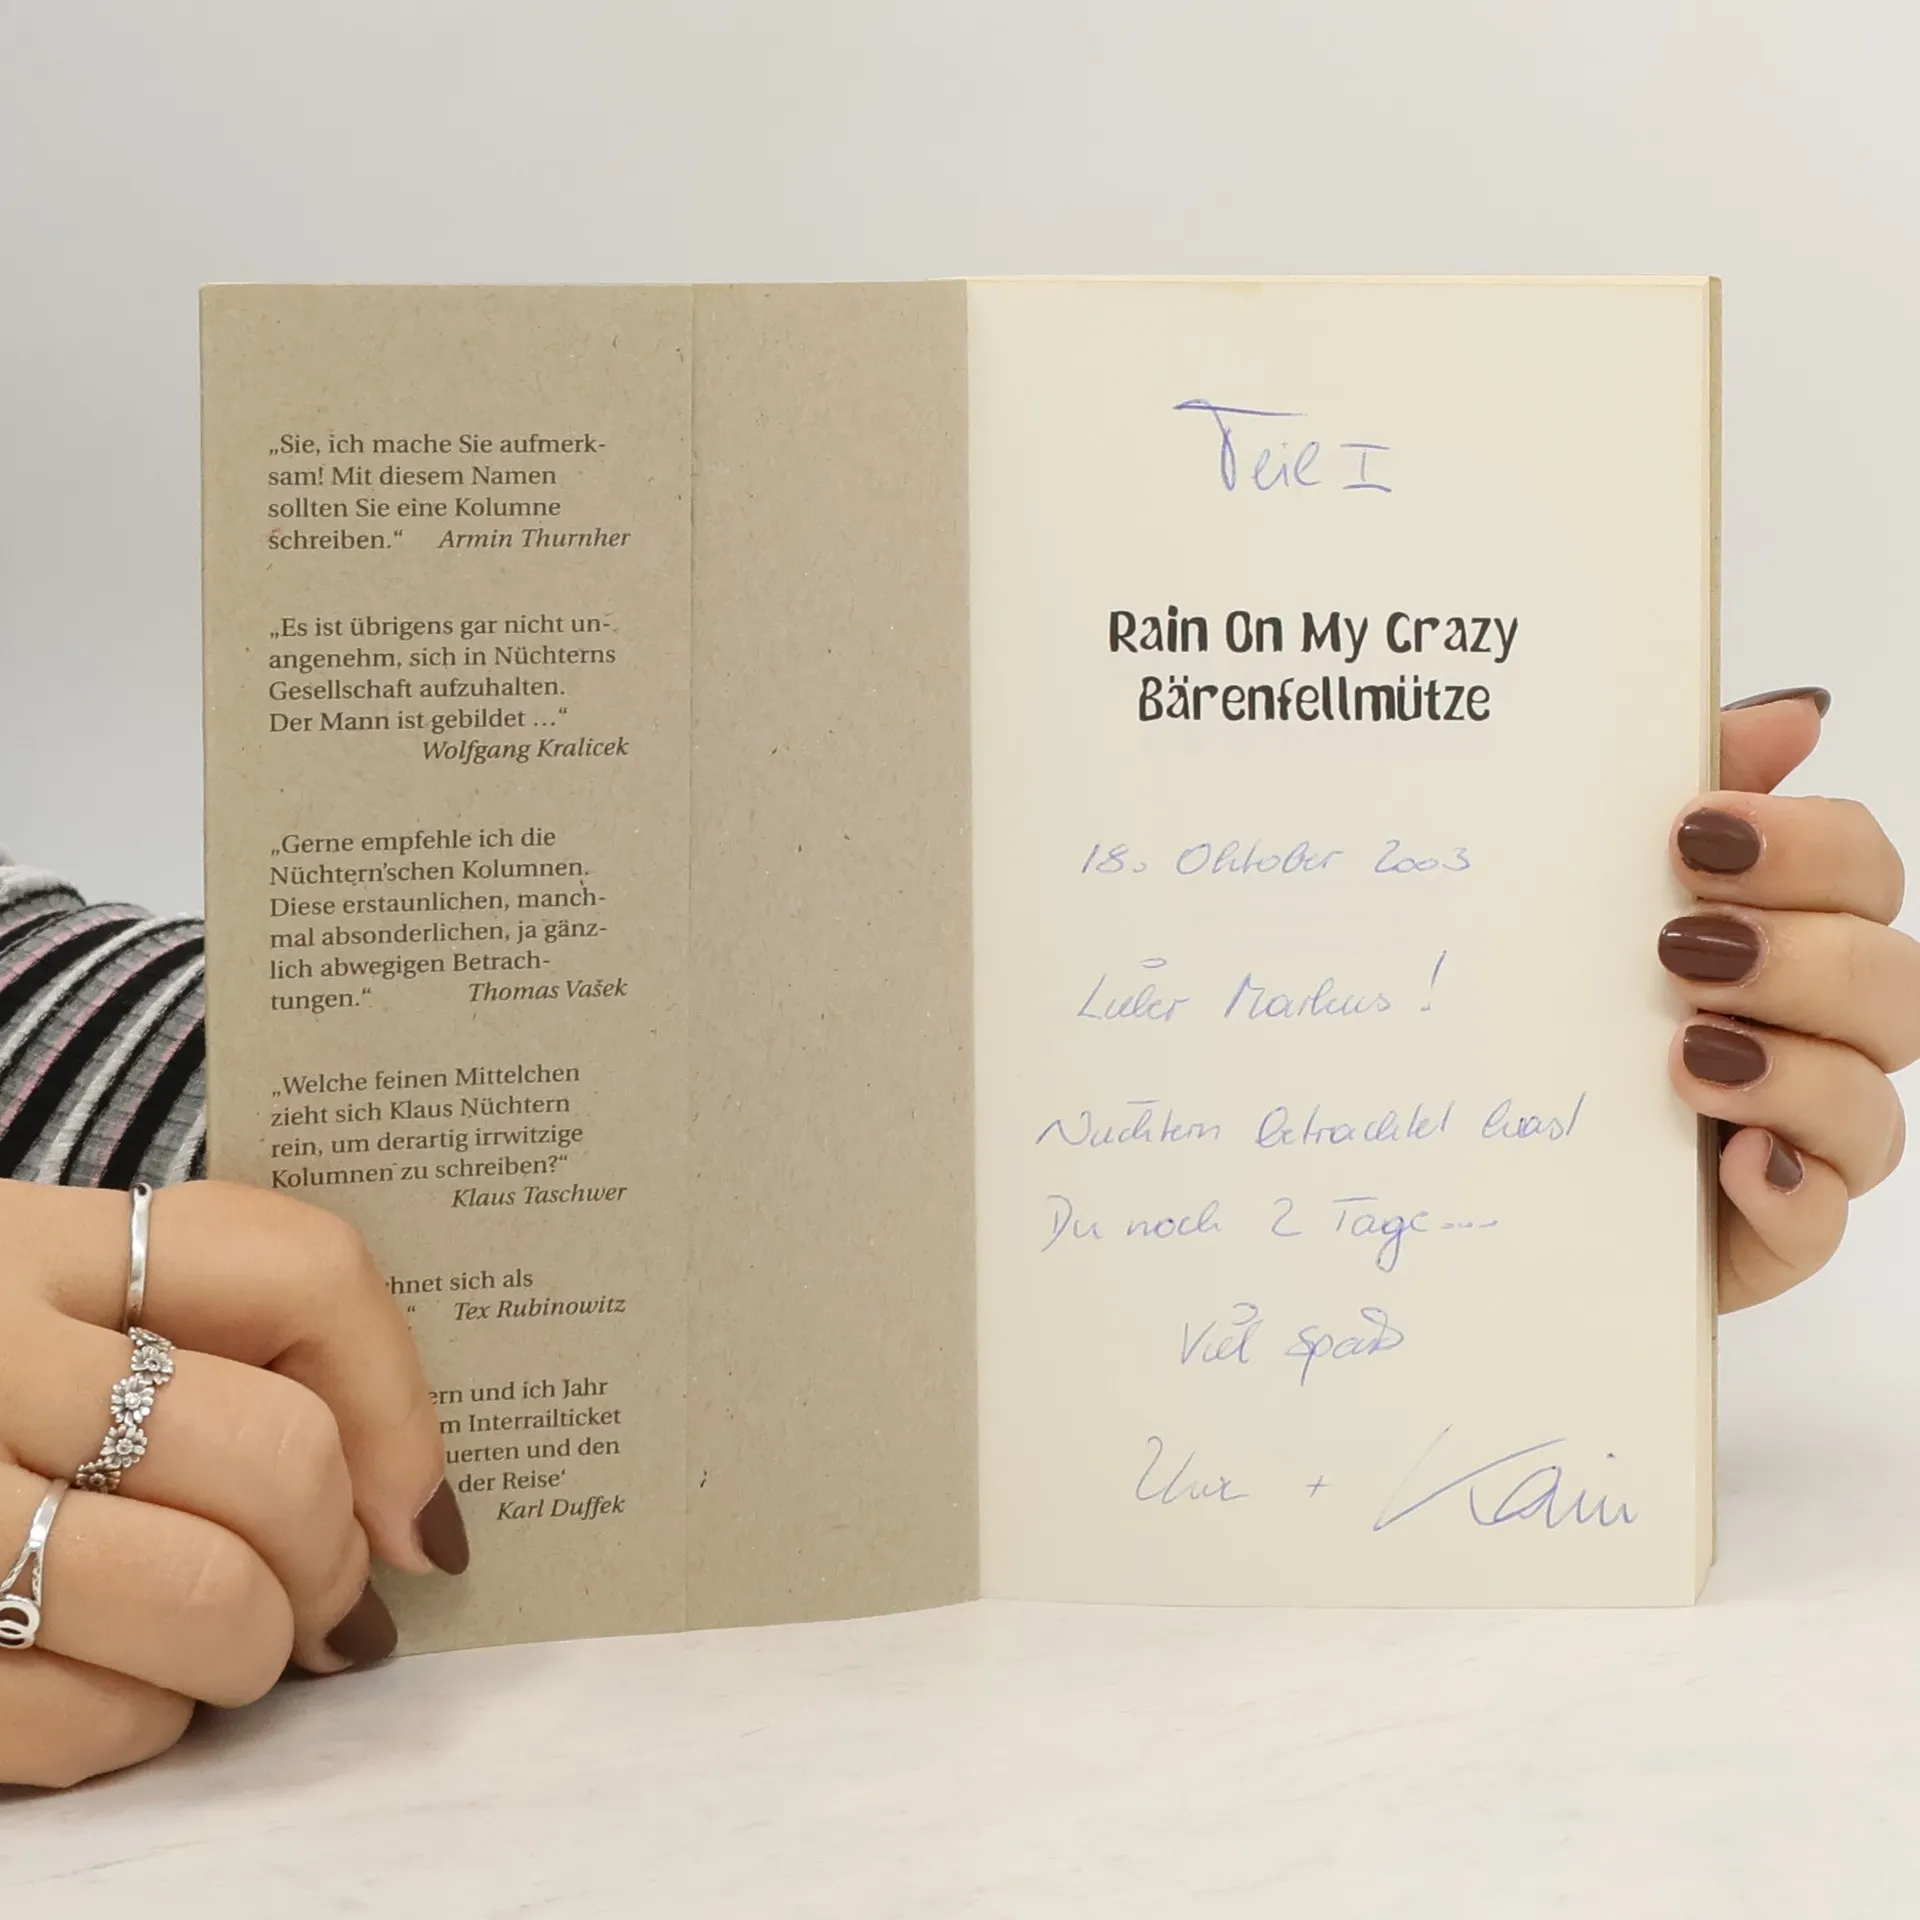 „Sie, ich mache Sie aufmerk-
sam! Mit diesem Namen
sollten Sie eine Kolumne
schreiben.“ Armin Thurnher
„Es ist übrigens gar nicht un-
angenehm, sich in Nüchterns
Gesellschaft aufzuhalten.
Der Mann ist gebildet ...“
Wolfgang Kralicek
„Gerne empfehle ich die
Nüchtern’schen Kolumnen.
Diese erstaunlichen, manch-
mal absonderlichen, ja gänz-
lich abwegigen Betrach-
tungen.“ Thomas Vašek
„Welche feinen Mittelchen
zieht sich Klaus Nüchtern
rein, um derartig irrwitzige
Kolumnen zu schreiben?“
Klaus Taschwer
hnet sich als
“ Tex Rubinowitz
ern und ich Jahr
m Interrailticket
uerten und den
der Reise‘
Karl Duffek
Teil I
Rain On My Crazy
Bärenfellmütze
18. Oktober 2003
Lieber Markus!
Nüchtern betrachtet hast
Du noch 2 Tage....
Viel Spaß
+